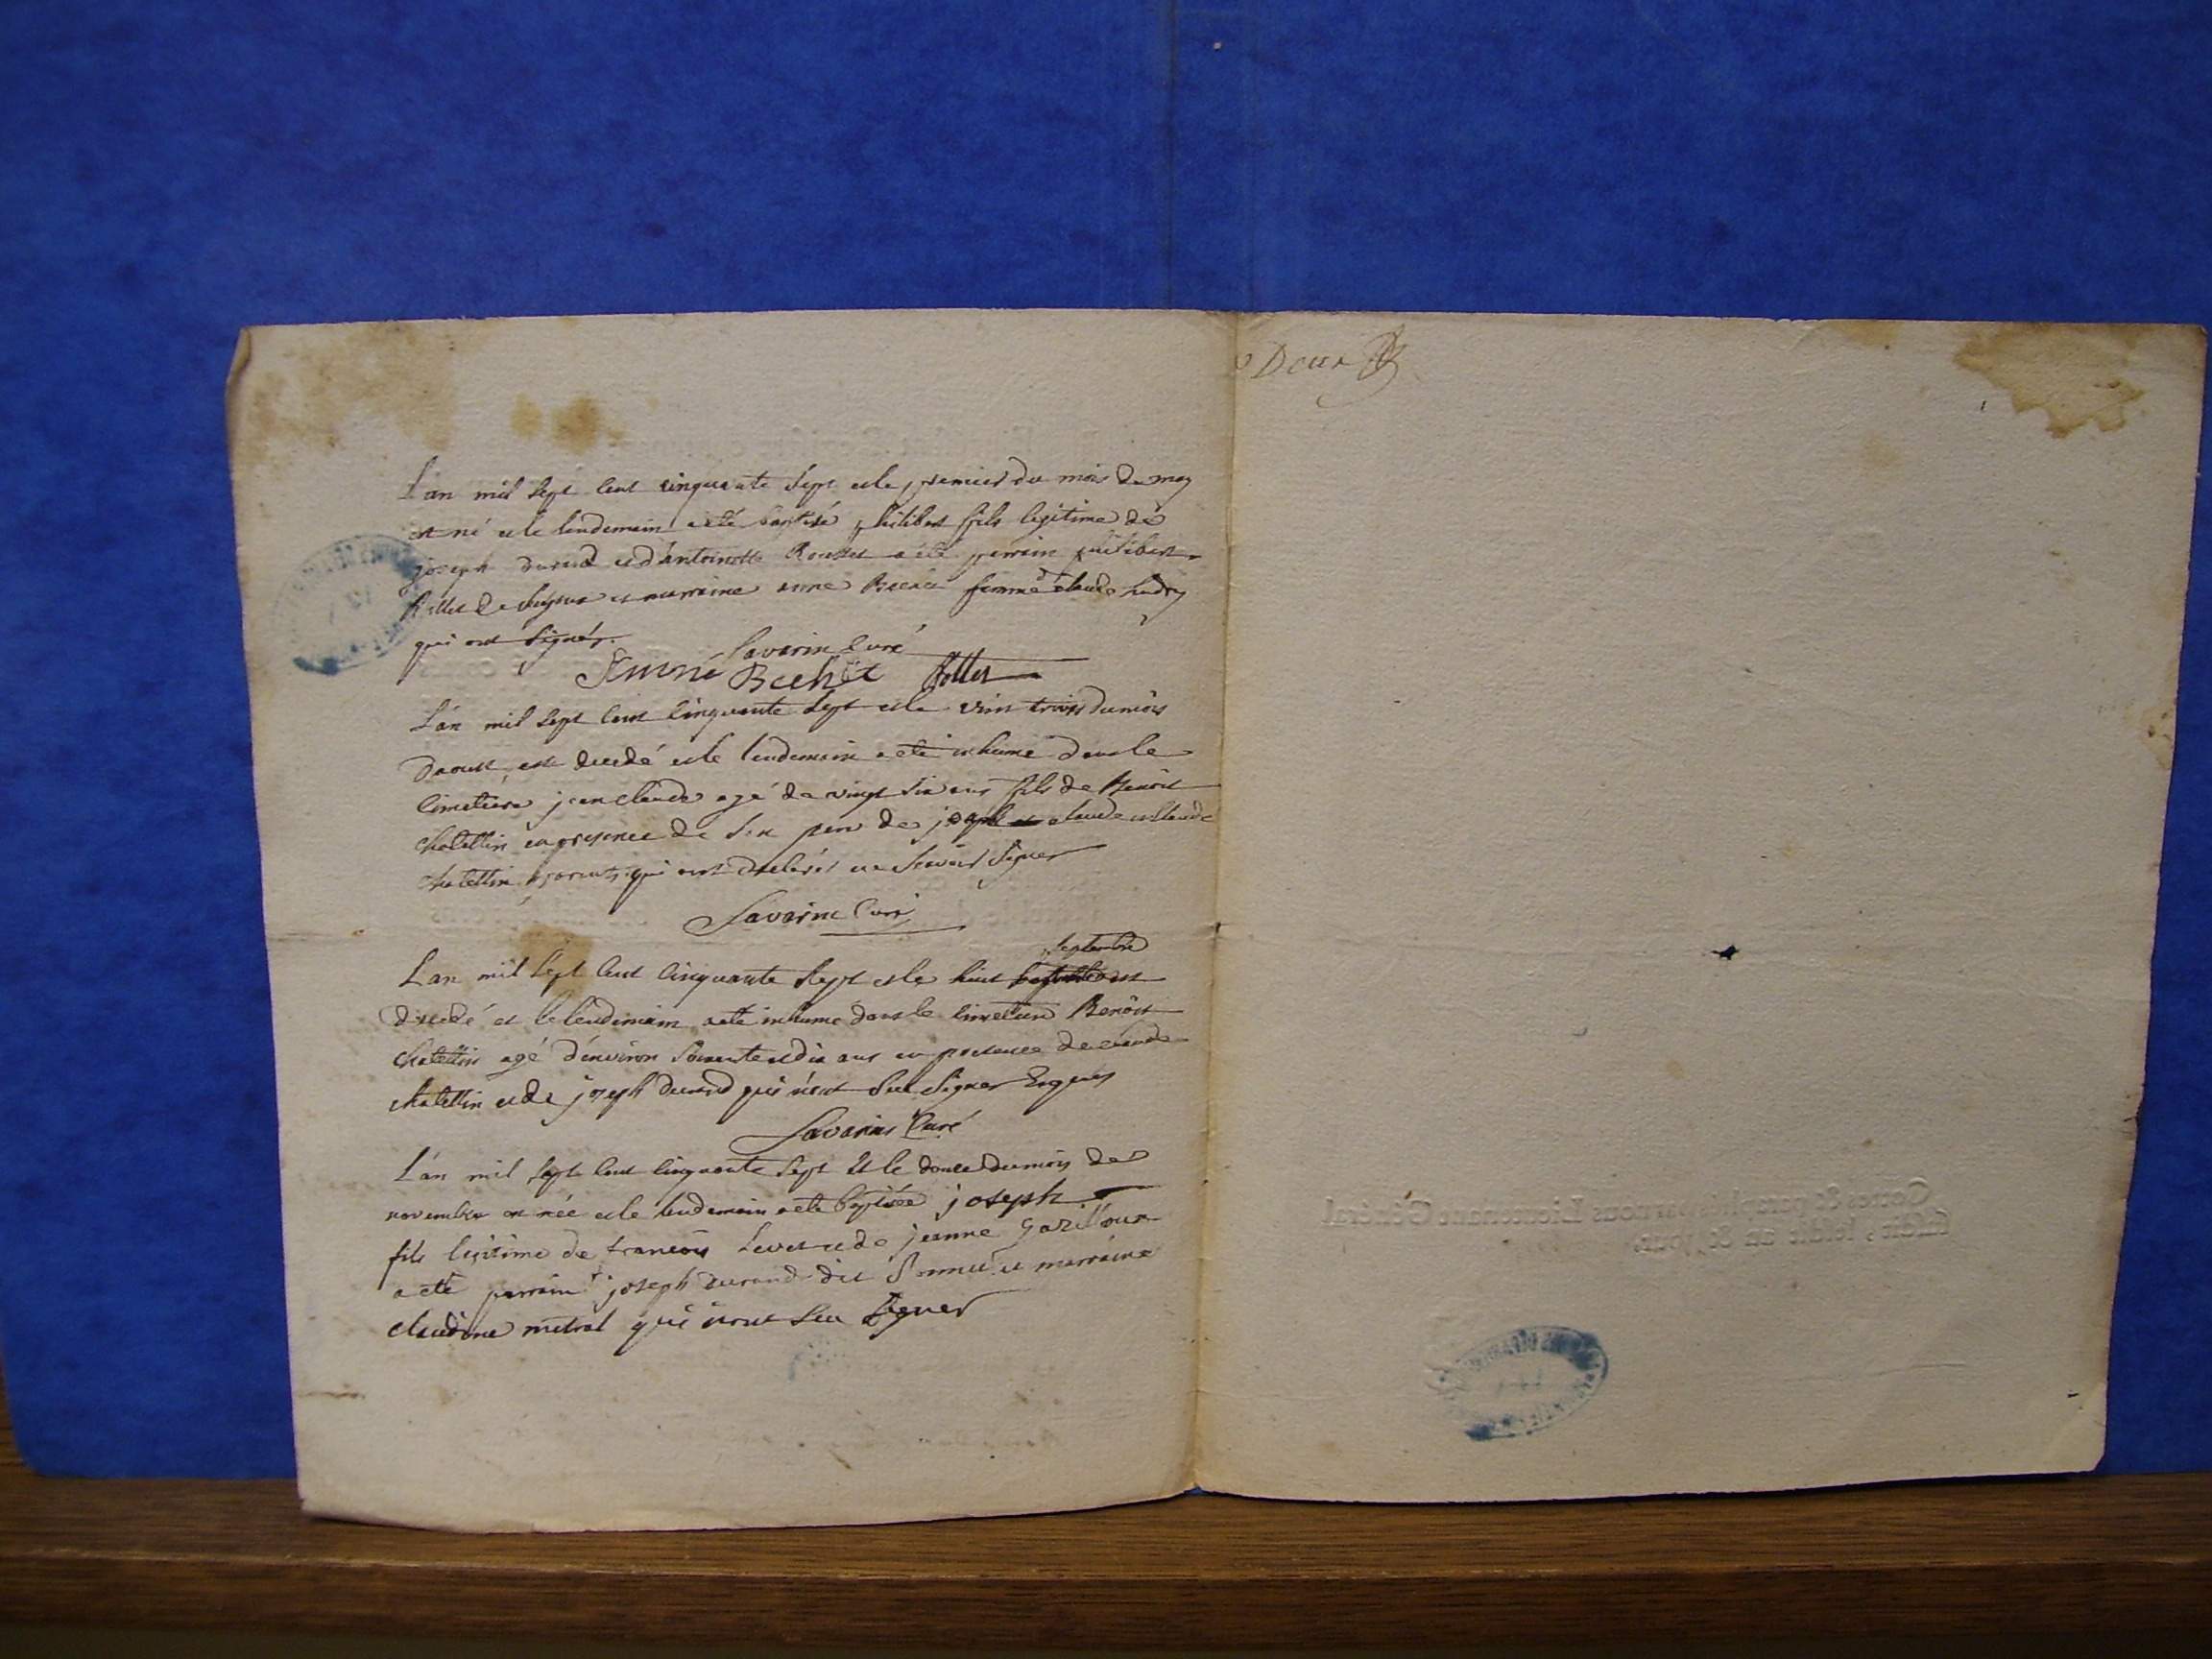 L'an mil sept cent cinquante sept et le premier du mois de may
est né et le lendemain a été baptisé philibert fils legitime de
joseph durand et d'antoinette Rousset a été parrain philibert
et marraine anne femme de claude
qui ont signés.
Savarin Curé
Bechet
L'an mil sept cent cinquante sept et le vint trois du mois
daoust est decedé et le lendemain a été inhumé dans le
cimetiere jean claude agé de vingt six ans fils de Benoit
chatettin en presence de son pere de joseph et claude et claude
chatettin parents qui ont declarés ne scavoir signer
Savarin Curé
septembre
L'an mil sept cent cinquante sept et le huit est
decedé et le lendemain a été inhumé dans le cimetiere Benoit
chatettin agé d'environ soixante et dix ans en presence de claude
chatettin et de joseph durand qui n'ont sceu signer Enquis
Savarin Curé
L'an mil sept cent cinquante sept et le douze du mois de
novembre est née et le lendemain a été baptisée joseph
fils legitime de francois et de jeanne
a été parrain joseph durand dit et marraine
claudine metral qui n'ont sceu signer
Deux
Cottés & paraphés par nous Lieutenant Général